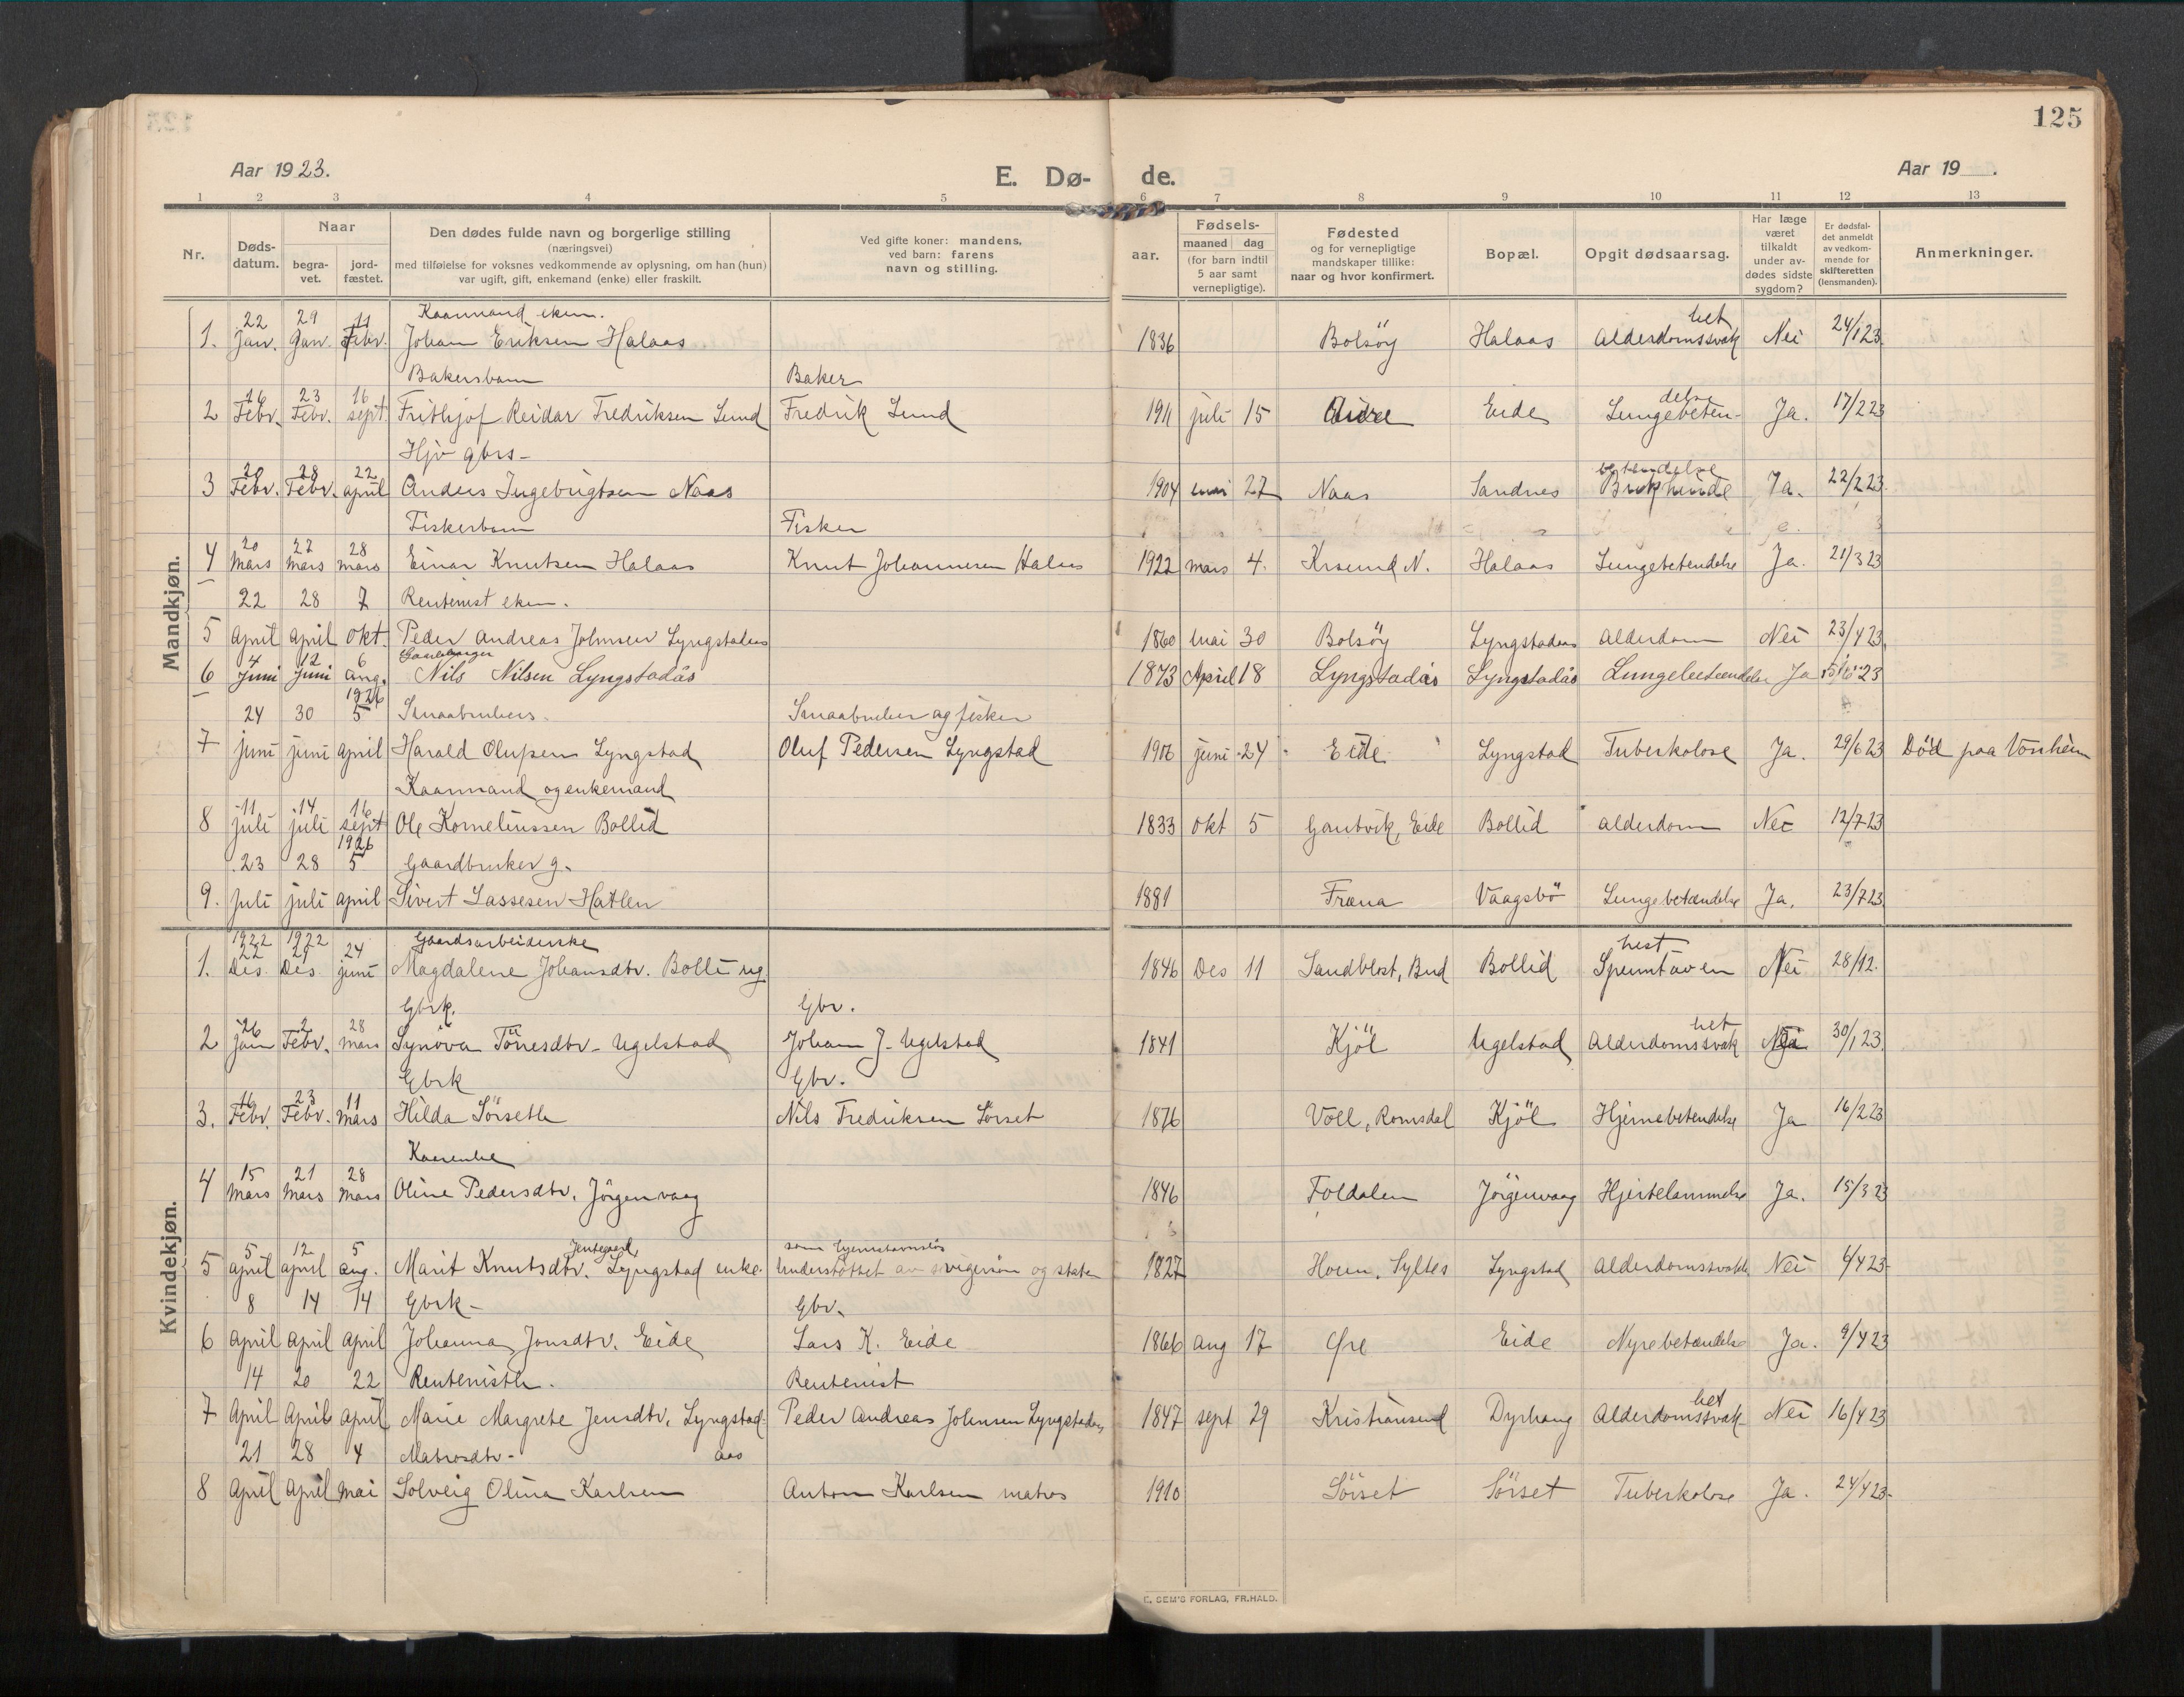 125
Aar 1923.
E. Dø- de.
Aar 19 .
1 2 3 4 5 6 7 8 9 10 11 12 13
Nr.
Døds-datum.
Naar
begra-vet.
jord-fæstet.
Den dødes fulde navn og borgerlige stilling
(næringsvei)
med tilføielse for voksnes vedkommende av oplysning, om han (hun)
var ugift, gift, enkemand (enke) eller fraskilt.
Ved gifte koner: mandens,
ved barn: farens
navn og stilling.
Fødsels-
aar.
maaned dag
(for barn indtil
5 aar samt
vernepligtige).
Fødested
og for vernepligtige
mandskaper tillike:
naar og hvor konfirmert.
Bopæl.
Opgit dødsaarsag.
Har læge
været
tilkaldt
under av-
dødes sidste
sygdom?
Er dødsfal-
det anmeldt
av vedkom-
mende for
skifteretten
(lensmanden).
Anmerkninger.
Mandkjøn.
22 29 11 Kaarmand ekm. het
1. Jan. Jan. Febr. Johan Eriksen Halaas 1836 Bolsöy Halaas Alderdomssvak Nei 24/1 23.
Bakersbarn Baker
16 23 16 delse
2 Febr. Febr. sept. Frithjof Reidar Fredriksen Lund Fredrik Lund 1911 juli 15 Eide Lungebeten- Ja. 17/2 23
20 28 22 betendelse
3 Febr. Febr. april Anders Ingebrigtsen Naas 1904 mai 27 Naas Sandnes Ja. 22/2 23.
Fiskerbarn Fisker
20 22 28
4 Mars Mars Mars Einar Knutsen Halaas Knut Johannesen Halaas 1922 mars 4. Krsund N. Halaas Lungebetendelse Ja. 21/3 23
22 28 7 Rentenist ekm.
5 April April Okt. Peder Andreas Johnsen Lyngstadaas 1860 mai 30 Bolsöy Lyngstadaas Alderdom Nei 23/4 23.
4 12 6
6 Juni Juni Aug. Nils Nilsen Lyngstadås 1873 April 18 Lyngstadås Lyngstadås Lungebetændelse Ja 5/6 23
1926
24 30 5 Smaabrukers. Smaabruker og fisker
7 juni juni april Harald Olufsen Lyngstad Oluf Pedersen Lyngstad 1906 juni 24 Eide Lyngstad Tuberkolose Ja. 29/6 23 Död paa Vonheim
Kaarmand og enkemand
11 14 16
8 juli juli sept Ole Korneliussen Bollid 1833 Okt 5 Gautvik, Eide Bollid Alderdom Nei 12/7 23
1926
23 28 5 Gaardbruker g.
9. Juli juli april Sivert Lassesen Hatlen 1881 Fræna Vaagsbö Lungebetændelse Ja. 23/7 23
Kvindekjøn.
1922 1922
22 29 24 Gaardsarbeiderske
1. Des. Des. juni Magdalene Johansdtr. Bolli ug. 1846 Des 11 Sandblost, Bud Bollid Nei 28/12.
Gbrk. Gbr.
26 2 28 het
2 Jan Febr. Mars Synöva Törresdtr. Ugelstad Johan J. Ugelstad 1841 Kjöl Ugelstad Alderdomssvak Nei 30/1 23.
Gbrk Gbr.
16 23 11
3. Febr. Febr. Mars Hilda Sörseth Nils Fredriksen Sörset 1876 Voll, Romsdal Kjöl Hjernebetendelse Ja 16/2 23
Kaarenke
15 21 28
4 Mars Mars Mars Oline Pedersdtr. Jörgenvaag 1846 Foldalen Jörgenvaag Hjertelammelse Ja. 15/3 23
5 12 5 Jentegaard som hjemstavnslös
5 April April Aug. Marit Knutsdtr. Lyngstad enke. Understöttet av svigersön og staten 1827 Houen, Syltes Lyngstad Alderdomssvakh Nei 6/4 23
8 14 14 Gbrk. Gbr.
6 April April April Johanna Jonsdtr. Eide Lars K. Eide 1866 Aug 17 Øre Eide Nyrebetændelse Ja. 9/4 23
14 20 22 Rentenistk. Rentenist
het
7 April April April Marie Margrete Jensdtr. Lyngstad- Peder Andreas Johnsen Lyngstadaas 1847 sept 29 Kristiansund Dyrhaug Alderdomssvak Nei 16/4 23
21 28 4 Matrosdtr. aas
8 April April Mai Solveig Olina Karlsen Anton Karlsen matros 1910 Sörset Sörset Tuberkolose Ja. 24/4 23.
E. SEM'S FORLAG, FR.HALD.